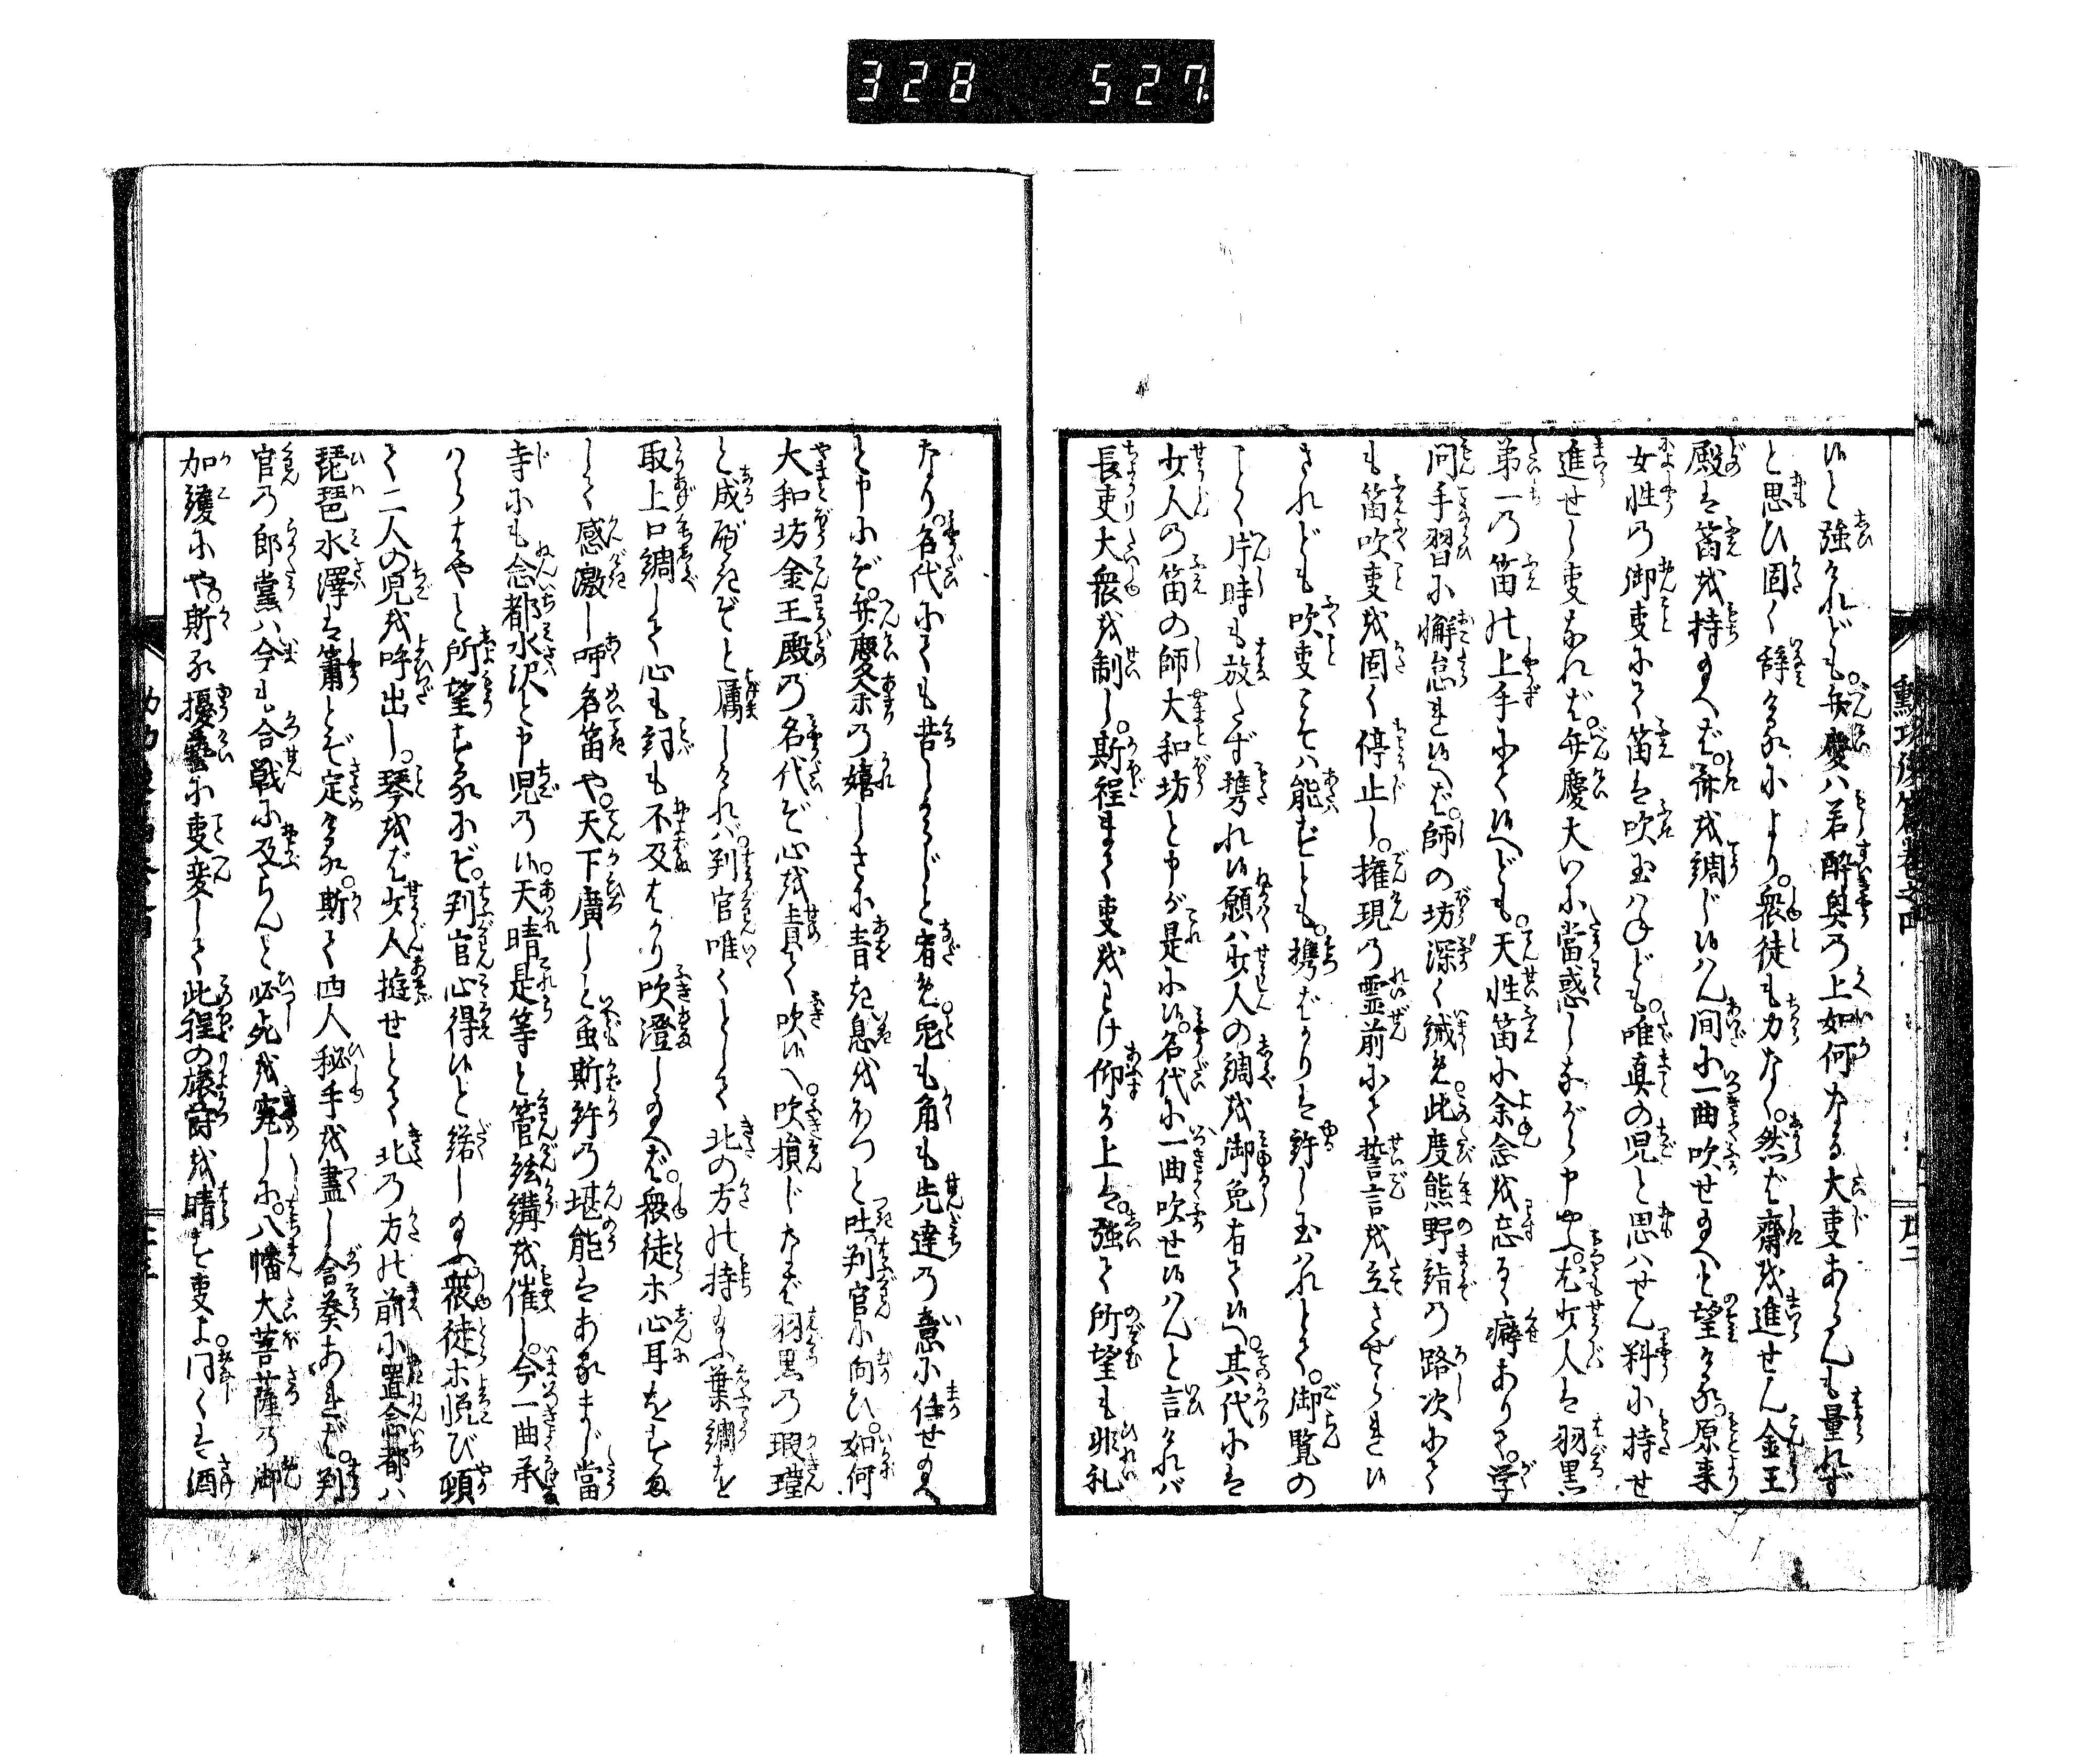 328 527
勲功後篇巻之四
候と強けれども。弁慶ハ若酔興の上如何なる大事あらんも量れず
と思ひ固く辞けるにより。衆徒も力なく。然ば齋を進せん金王
殿は笛を持給へば。箏を調じ候はん間に一曲吹せ給へと望ける。原来
女性の御事にて笛は吹玉ハねども。唯真の児と思ハせん料に持せ
進せし事なれば。弁慶大いに當惑しながら申やう。尤少人は羽黒
第一の笛の上手にて候へども。天性笛に余念を忘るゝ癖ありて。学
問手習に懈怠を候へば。師の坊深く誡め。此度熊野詣の路次にて
も笛吹事を固く停止し。権現の霊前にて誓言を立させられ候
されども吹事こそハ能ずとも。携ばかりは許し玉ハれとて。御覧の
ごとく片時も放たず携れ候願ハ少人の調を御免有て候へ。其代には
少人の笛の師大和坊と申が是に候。名代に一曲吹せ候ハんと言けれバ
長吏大衆を制し。斯程まで事をわけ仰る上は。強て所望も非礼
たり。名代にても苦しからじと宥め。兎も角も先達の意に任せ給へ
と申にぞ。弁慶余の嬉しさに青き息をほつと吐。判官に向ひ。如何
大和坊金王殿の名代ぞ心を責て吹候へ。吹損じたらば羽黒の瑕瑾
と成べきぞと厲しければ。判官唯々として北の方の持給ふ葉綱を
取上口綢して心も詞も不及ばかり吹澄し給へば。衆徒等心耳をすま
して感激し呼名笛や。天下廣しと虽斯許の堪能はあるまじ當
寺にも念都水沢と申児の候。天晴是等と管弦講を催し。今一曲承
ハらばやと所望するにぞ。判官心得候と諾し給へバ。衆徒等悦び頓
て二人の児を呼出し。琴をば少人遊せとて北の方の前に置念都ハ
琵琶水澤は簫とぞ定ける。斯て四人秘手を盡し合奏あれば。判
官の郎黨ハ今も合戦に及らんと必死を究しに。八幡大菩薩の御
加護にや。斯る擾藝に事変じて此程の旅欝を晴す事よ。同くは酒